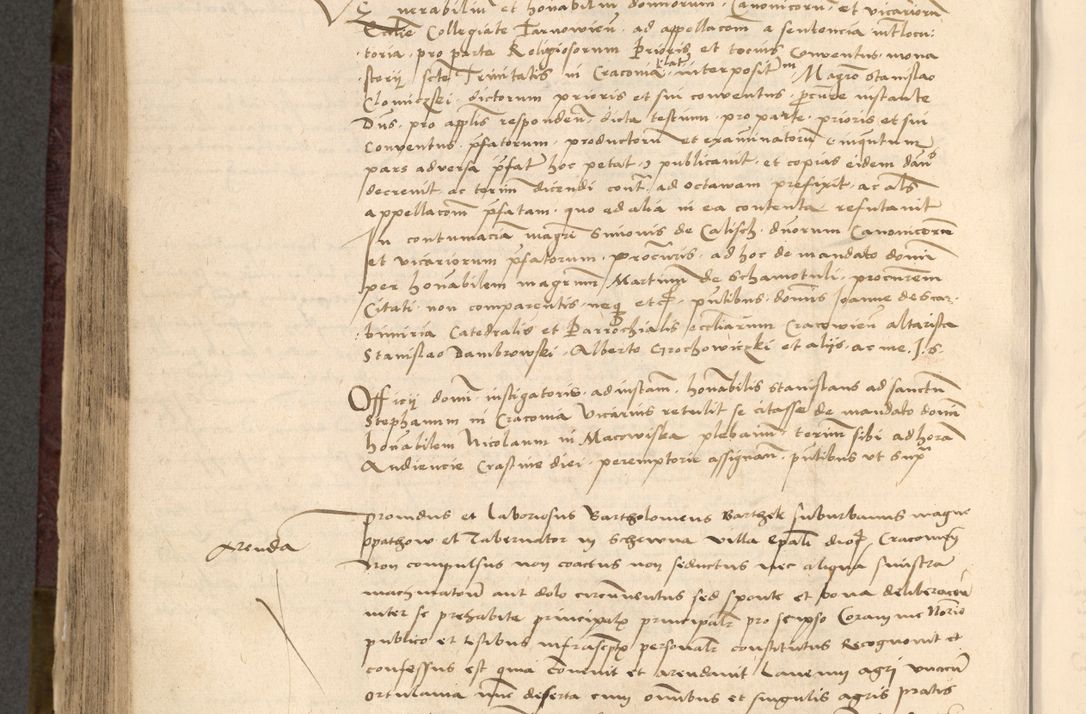 Venerabilium et honabilium dominorum Canonicorum et vicariorum
Ecclie Collegiate Tarnowien ad appellacom a sentencia intlocu:
toria pro parte Religiosorum Prioris et tocius Conventus mona
sterij scte Trinitatis in Cracovia lat interposit Magro Stanislao
dictorum prioris et sui conventus procure instante
Dns pro applis responden dicta testium pro parte prioris et sui
Conventus pfatorum productorum et examinatorum
pars adversa pfat hoc petat publicavit et copias eidem
decrevit ac terim dicendi cont ad octavam prefixit ac als
appellacom pfatam quo ad alia in ea contenta refutavit
In contumaciam magri Simonis de Calisch duorum Canonicorum
et vicariorum pfatorum procuris ad hoc de mandato domini
per honabilem magrum Martinum de Schamotuli procurem
Citati non comparentis neq et pntibus domis Joanne de
Catedralis et Parrochialis eccliarum Cracovien altarista
Stanislao Dambrowski Alberto Grochowiczki et alijs ac me J. S.
Officij domi instigatoris ad instam honabilis Stanislaus ad sanctum
Stephanum in Cracovia vicarius retulit se citasse de mandato domi
honabilem Nicolaum in Maczwiska plebanum terim sibi ad horam
Audiencie Crastine diei peremptorie assignan pntibus ut supra
Arenda
Providus et laboriosus Bartholomeus Barthek suburbanus
et Tabernator in Schewna villa epali dioc Cracovien
Non compulsus non coactus non seductus nec aliqua sinistra
machinatione aut dolo circumventus sed sponte et bona deliberacoe
inter se prehabita principalis principalr pro seipso Coram me Norio
publico et testibus infrascptis personalr constitutus Recognovit et
confessus est quia convenit et arendavit Laneum agri unacum
ortulania nunc deserta cum omnibus et singulis agris pratis